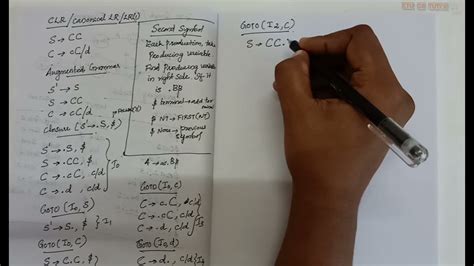 CLR/canonical LR/LR(1)
S → CC
C → cC/d
Augmented Grammar
S' → S
S → CC
C → cC/d
Closure (S' → .S, $)
S' → .S, $
S → .CC, $
C → .cC, c/d
C → .d, c/d
} I₀
Goto (I₀, S)
S' → S., $ } I₁
Goto (I₀, C)
S → C.C, $
Second Symbol
Each production, take
Producing variable
First Producing variable
in right side. If it
is . Bβ
β NT → FIRST(NT)
β None → previous
symbol
A → α.Bβ
Goto (I₀, c)
C → c.C, c/d
C → .cC, c/d
C → .d, c/d
} I₃
Goto (I₀, d)
C → d., c/d } I₄
GOTO (I2, C)
S → CC.